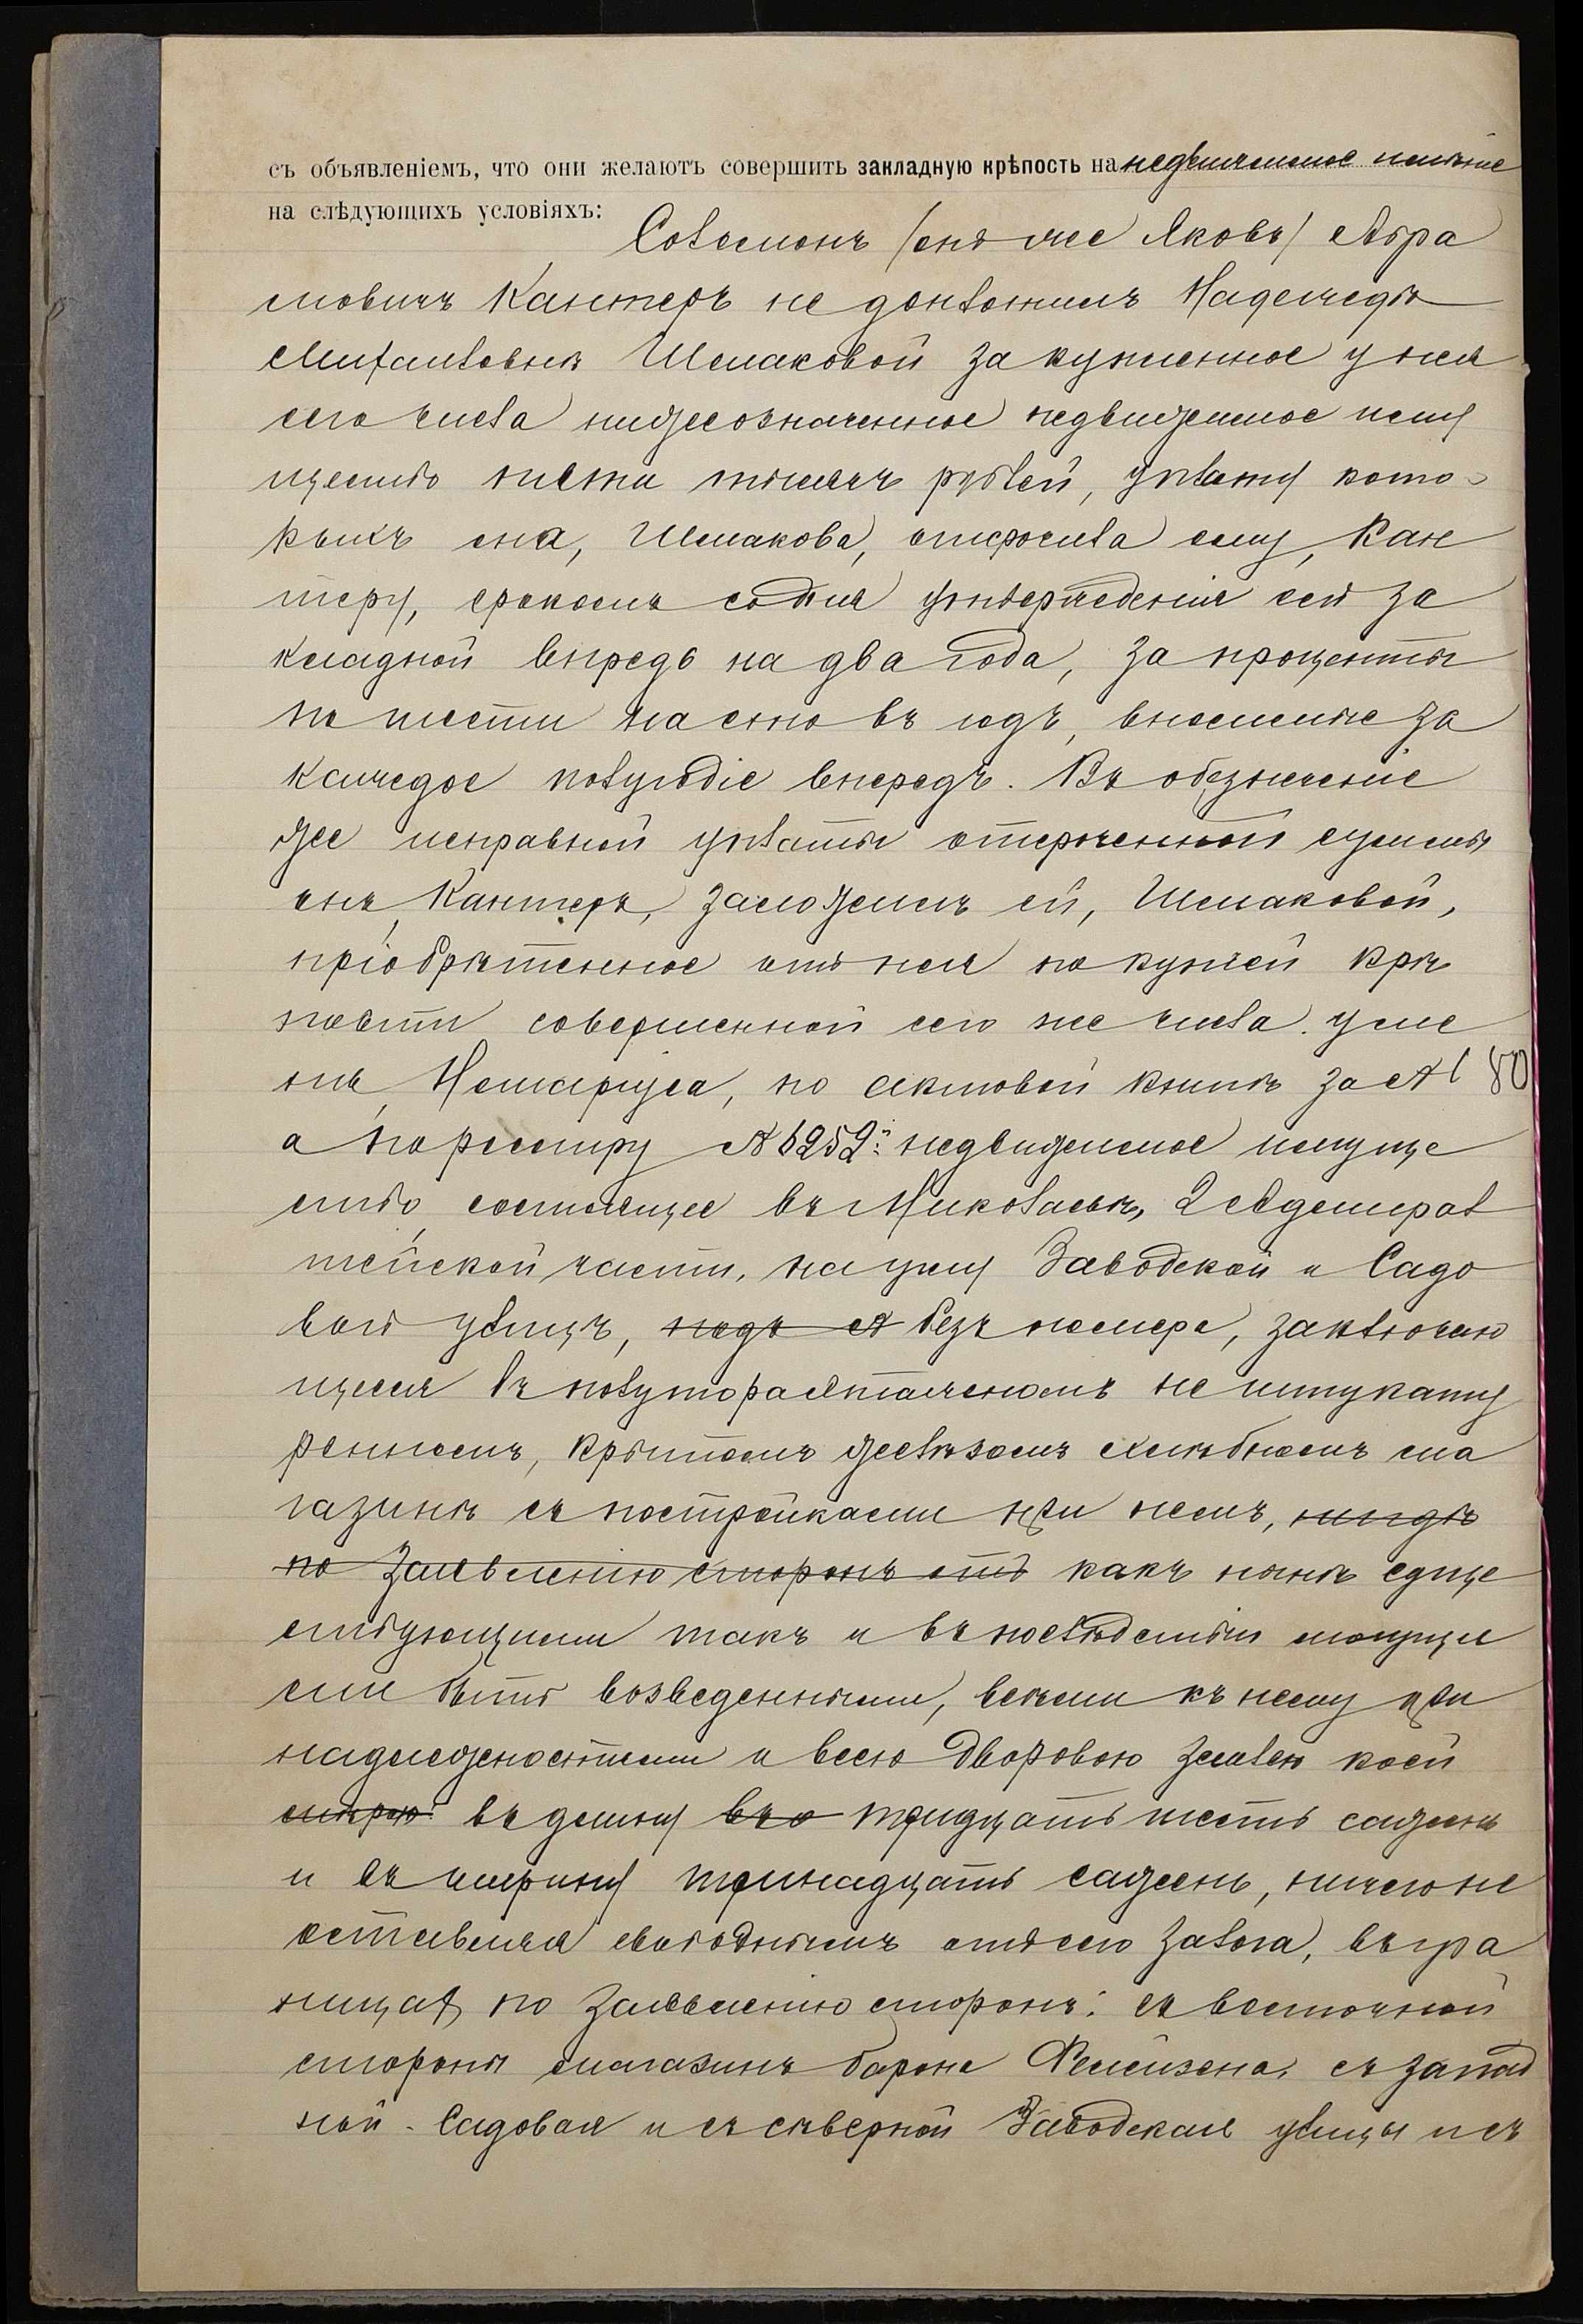 съ объявленіемъ, что они желаютъ совершить закладную крѣпость на недвижимое имѣніе
на слѣдующихъ условіяхъ:
Соломонъ /онъ же Яковъ/ Абра
мовичъ Канторъ не доплотилъ Надеждѣ
Михайловнѣ Шмаковой за купленное у нея
сего числа нижеозначенное недвижимое иму
щество шесть тысячъ рублей, уплату кото-
рыхъ она, Шмакова, отсрочила ему, Кан
тору, срокомъ со дня утвержденія сей за
кладной впредь на два года, за проценты
по шести на сто въ годъ, вносимые за
каждое полугодіе впередъ. Въ обезпеченіе
же исправной уплаты отсроченной суммы
онъ, Канторъ, заложилъ ей, Шмаковой,
пріобрѣтенное отъ нея по купчей крѣ
пости совершенной сего же числа у ме
ня, Нотаріуса, по актовой книгѣ за № 80
а по реестру № 6252й недвижимое имуще
ство, состоящее въ Николаевѣ, 2 Адмирал
тейской части, на углу Заводской и Садо
вой улицъ, подъ № безъ номера, заключаю
щееся въ полутораэтажномъ не штукату
ренномъ, крытомъ желѣзомъ хлѣбномъ ма
газинѣ съ постройками при немъ,
по заявленію сторонъ отъ какъ нынѣ суще
ствующими такъ и въ послѣдствіи могущи
ми быть возведенными, всѣми къ нему при
надлежностями и всею дворовою землею коей
мѣрою въ длину тридцать шесть сажень
и въ ширину тринадцать сажень, ничего не
оставляя свободнымъ отъ сего залога, въ гра
ницахъ по заявленію сторонъ: съ восточной
стороны магазинъ барона съ запад
ной - Садовая и съ сѣверной Заводская улицы и съ